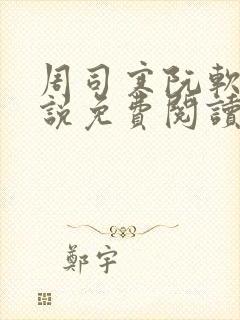 周司寒阮軟
說免費閱讀
鄭宇